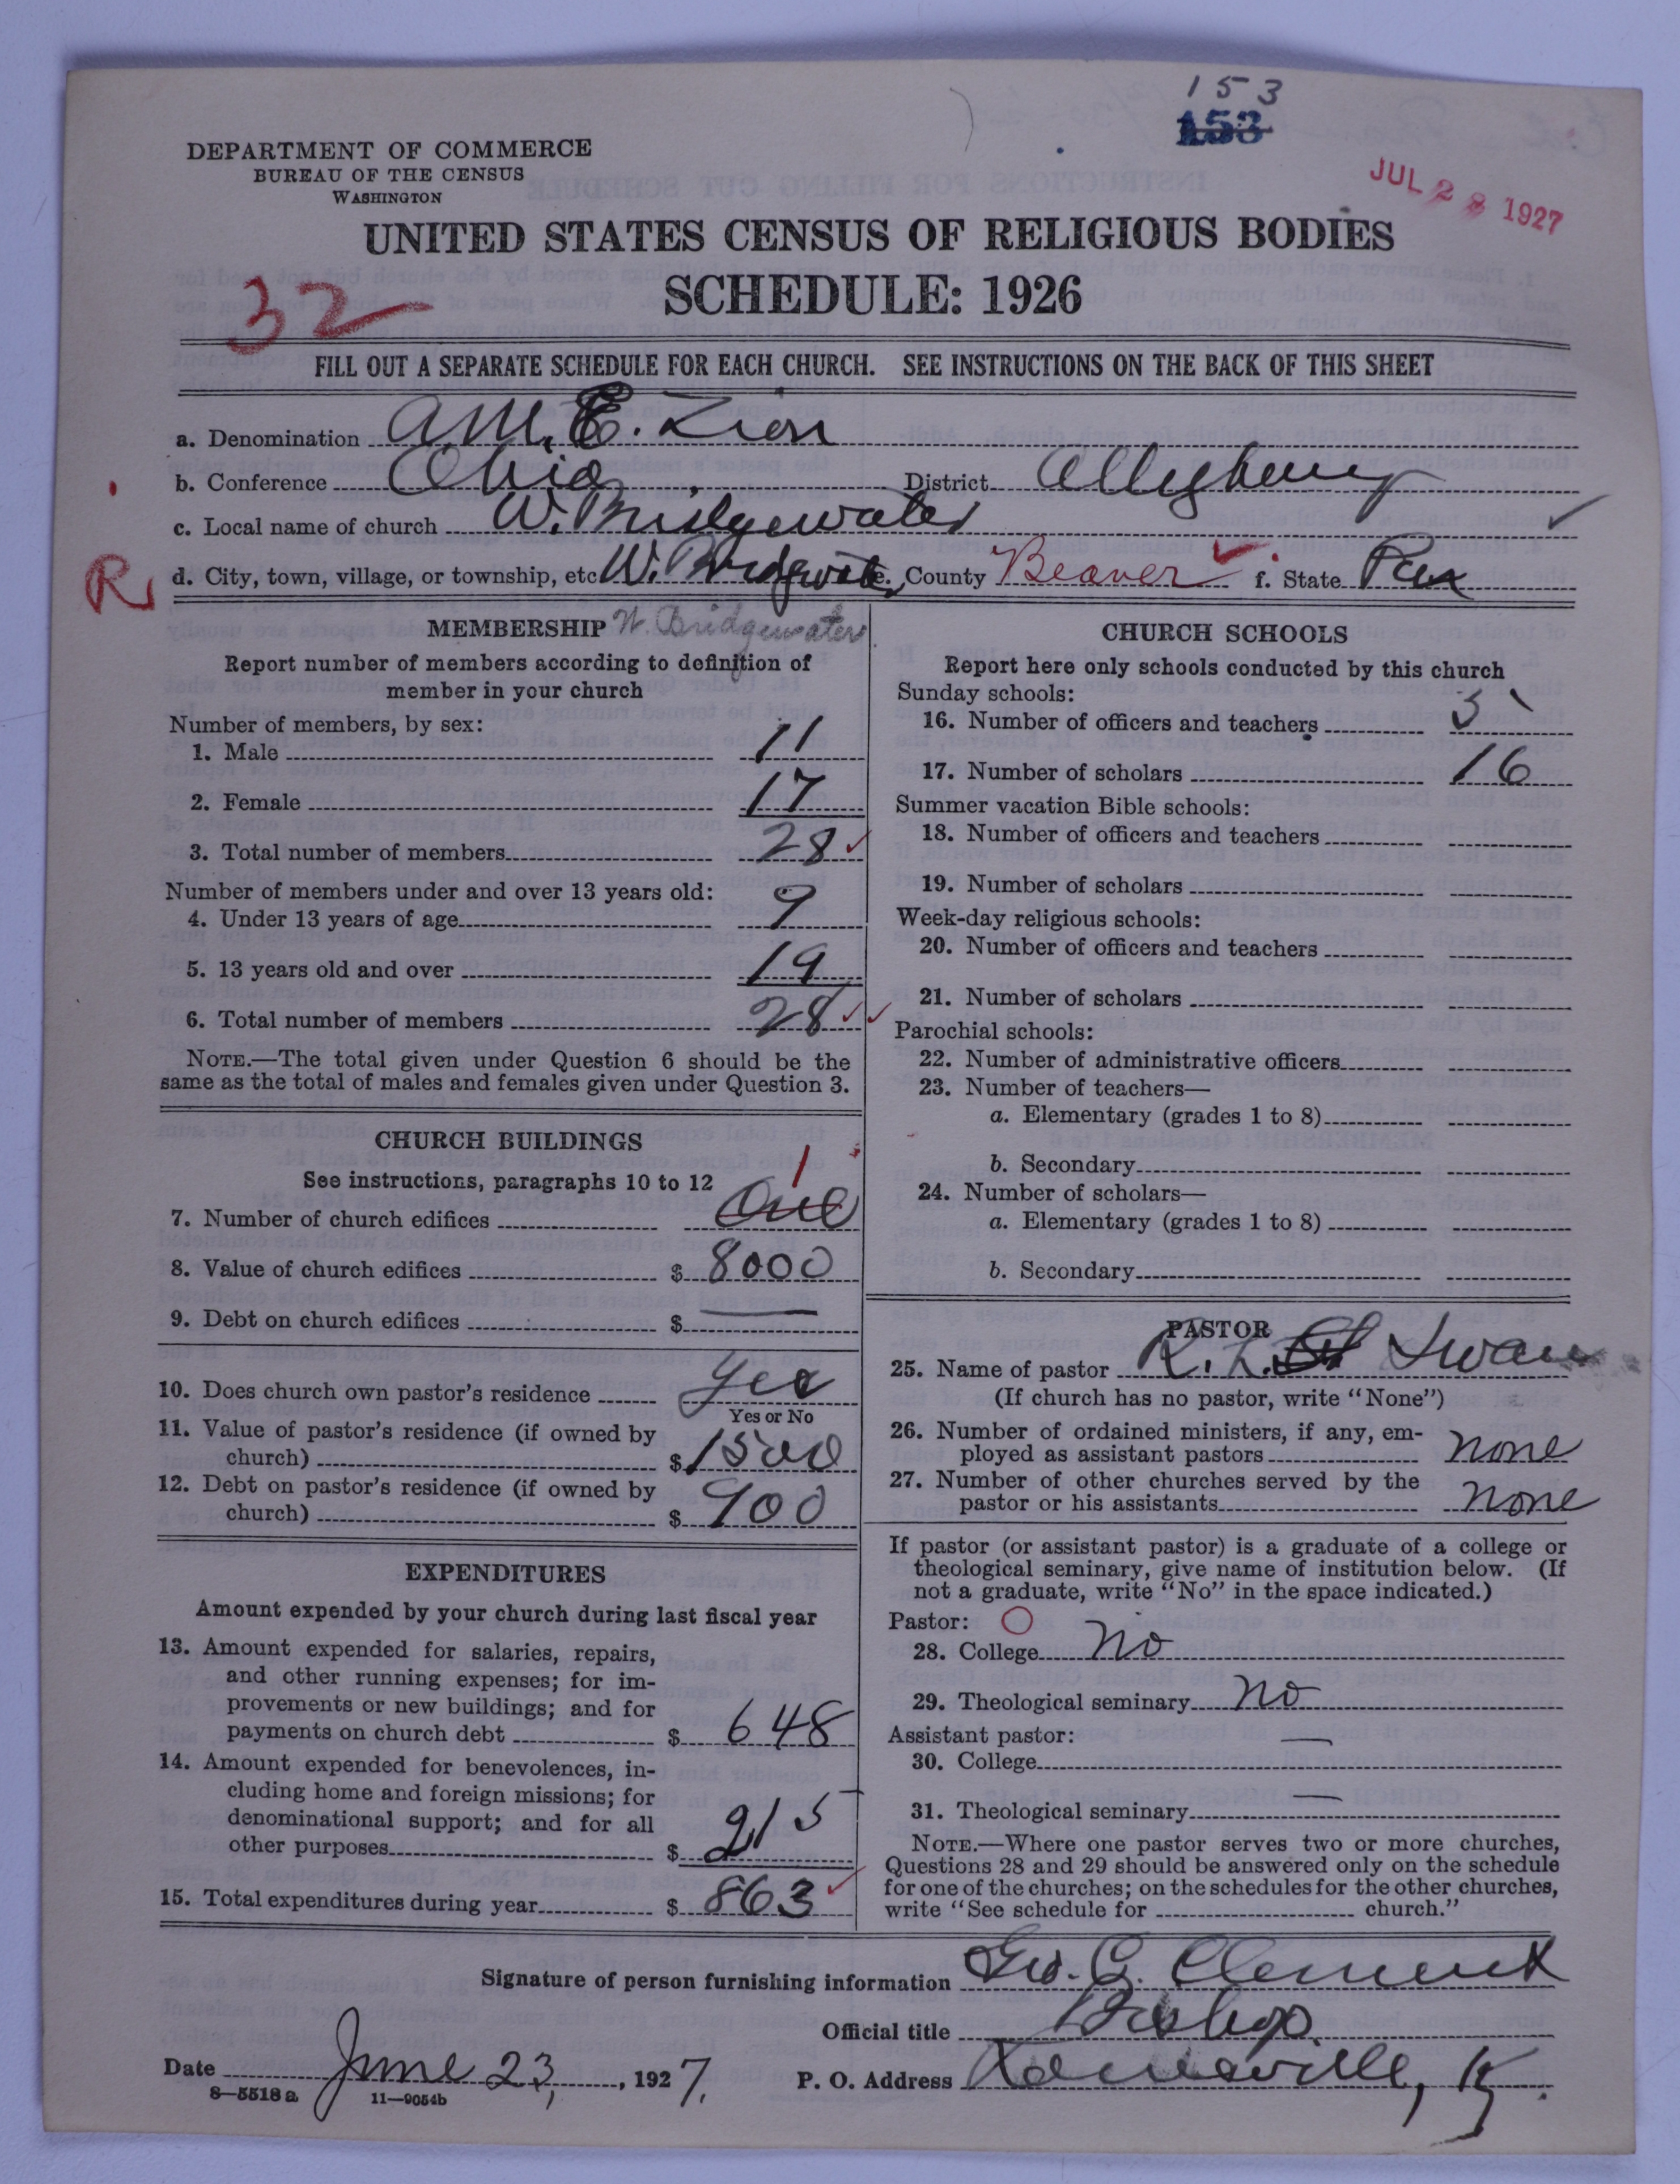 153
153
JUL 28 1927
DEPARTMENT OF COMMERCE
BUREAU OF THE CENSUS
WASHINGTON
UNITED STATES CENSUS OF RELIGIOUS BODIES
SCHEDULE: 1926
32
FILL OUT A SEPARATE SCHEDULE FOR EACH CHURCH. SEE INSTRUCTIONS ON THE BACK OF THIS SHEET
a. Denomination A.M.E. Zion
b. Conference Ohio District Allegheny
c. Local name of church W. Bridgewater
R d. City, town, village, or township, etc. W. Bridgewater e. County Beaver f. State Penn
MEMBERSHIP W. Bridgewater
Report number of members according to definition of
member in your church
Number of members, by sex:
1. Male 11
2. Female 17
3. Total number of members 28
Number of members under and over 13 years old:
4. Under 13 years of age 9
5. 13 years old and over 19
6. Total number of members 28
NOTE.—The total given under Question 6 should be the
same as the total of males and females given under Question 3.
CHURCH BUILDINGS
See instructions, paragraphs 10 to 12 1
7. Number of church edifices One
8. Value of church edifices $ 8000
9. Debt on church edifices $ —
10. Does church own pastor's residence Yes
Yes or No
11. Value of pastor's residence (if owned by
church) $ 1500
12. Debt on pastor's residence (if owned by
church) $ 900
EXPENDITURES
Amount expended by your church during last fiscal year
13. Amount expended for salaries, repairs,
and other running expenses; for im-
provements or new buildings; and for
payments on church debt $ 648
14. Amount expended for benevolences, in-
cluding home and foreign missions; for
denominational support; and for all
other purposes $ 215
15. Total expenditures during year $ 863
CHURCH SCHOOLS
Report here only schools conducted by this church
Sunday schools:
16. Number of officers and teachers
17. Number of scholars 16
Summer vacation Bible schools:
18. Number of officers and teachers
19. Number of scholars
Week-day religious schools:
20. Number of officers and teachers
21. Number of scholars
Parochial schools:
22. Number of administrative officers
23. Number of teachers—
a. Elementary (grades 1 to 8)
b. Secondary
24. Number of scholars—
a. Elementary (grades 1 to 8)
b. Secondary
PASTOR
25. Name of pastor R. L. Swan
(If church has no pastor, write "None")
26. Number of ordained ministers, if any, em-
ployed as assistant pastors none
27. Number of other churches served by the
pastor or his assistants none
If pastor (or assistant pastor) is a graduate of a college or
theological seminary, give name of institution below. (If
not a graduate, write "No" in the space indicated.)
Pastor: O
28. College No
29. Theological seminary No
Assistant pastor: —
30. College
31. Theological seminary —
NOTE.—Where one pastor serves two or more churches,
Questions 28 and 29 should be answered only on the schedule
for one of the churches; on the schedules for the other churches,
write "See schedule for church."
Signature of person furnishing information Geo. C. Clement
Official title Bishop
Date June 23, 1927. P. O. Address Louisville, Ky.
8—5518a 11—9054b